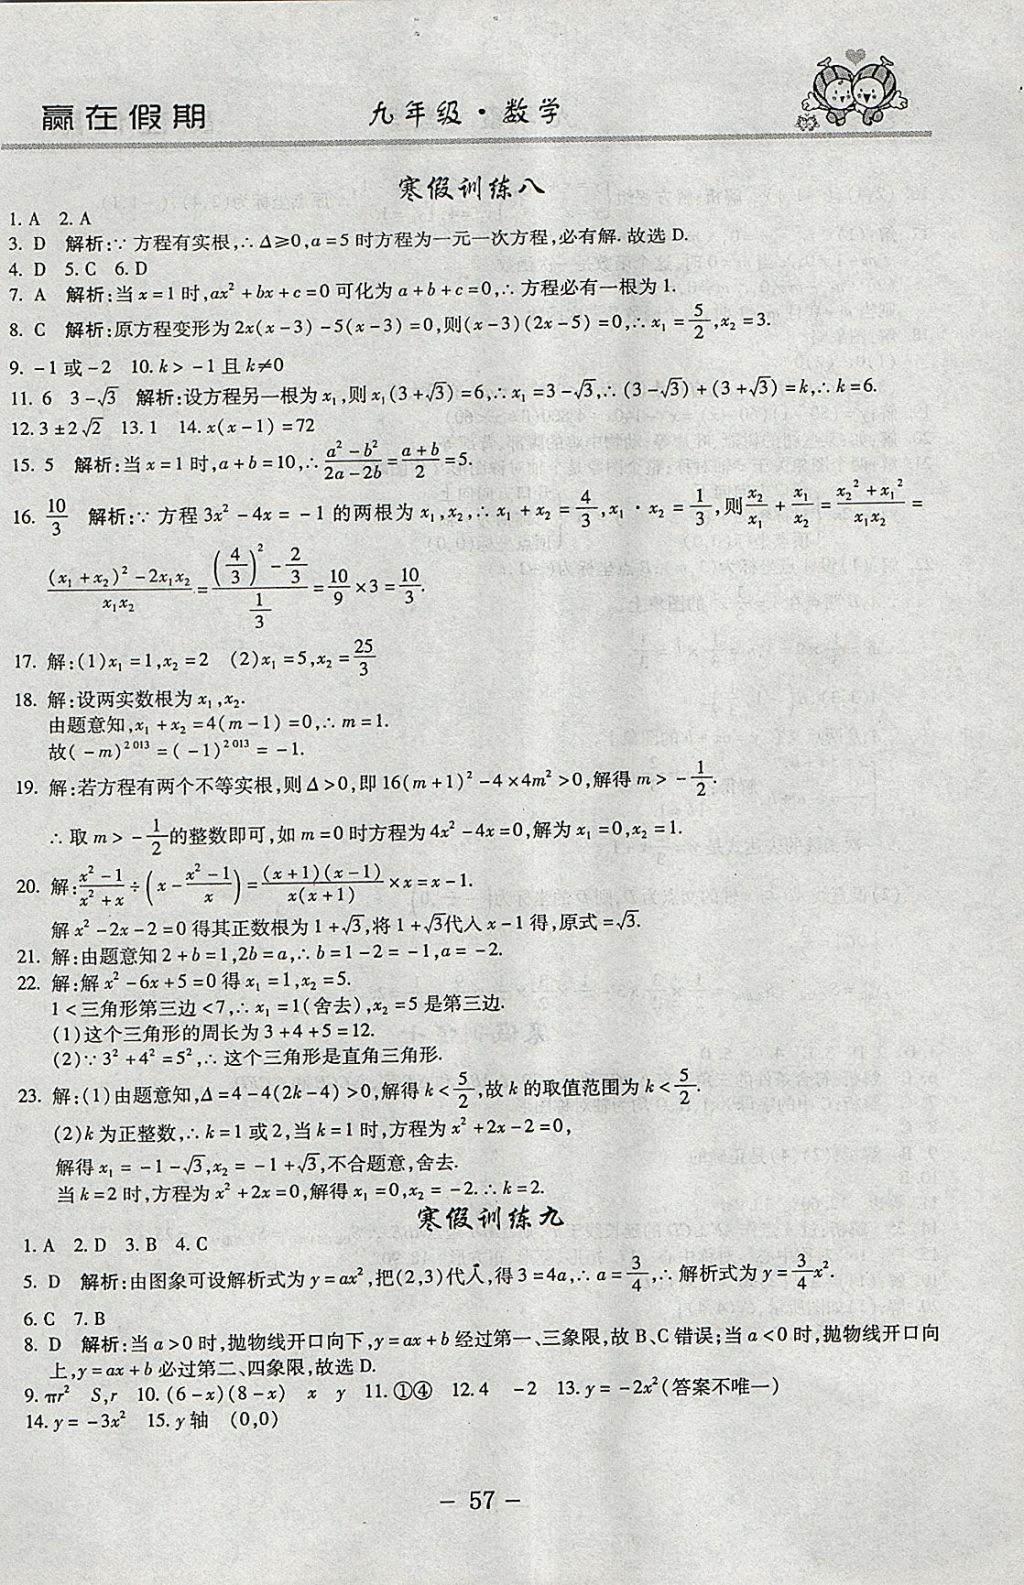 赢在假期
九年级·数学
寒假训练八
1. A  2. A
3. D  解析:∵方程有实根,∴Δ≥0,a=5时方程为一元一次方程,必有解.故选D.
4. D  5. C  6. D
7. A  解析:当x=1时,ax²+bx+c=0可化为a+b+c=0,∴方程必有一根为1.
8. C  解析:原方程变形为2x(x-3)-5(x-3)=0,则(x-3)(2x-5)=0,∴x₁=5/2,x₂=3.
9. -1或-2  10. k>-1且k≠0
11. 6  3-√3  解析:设方程另一根为x₁,则x₁(3+√3)=6,∴x₁=3-√3,∴(3-√3)+(3+√3)=k,∴k=6.
12. 3±2√2  13. 1  14. x(x-1)=72
15. 5  解析:当x=1时,a+b=10,∴(a²-b²)/(2a-2b)=(a+b)/2=5.
16. 10/3  解析:∵方程3x²-4x=-1的两根为x₁,x₂,∴x₁+x₂=4/3,x₁·x₂=1/3,则x₂/x₁+x₁/x₂=(x₂²+x₁²)/(x₁x₂)=
((x₁+x₂)²-2x₁x₂)/(x₁x₂)=((4/3)²-2/3)/(1/3)=10/9×3=10/3.
17. 解:(1)x₁=1,x₂=2  (2)x₁=5,x₂=25/3
18. 解:设两实数根为x₁,x₂.
由题意知,x₁+x₂=4(m-1)=0,∴m=1.
故(-m)²⁰¹³=(-1)²⁰¹³=-1.
19. 解:若方程有两个不等实根,则Δ>0,即16(m+1)²-4×4m²>0,解得m>-1/2.
∴取m>-1/2的整数即可,如m=0时方程为4x²-4x=0,解为x₁=0,x₂=1.
20. 解:(x²-1)/(x²+x)÷(x-(x²-1)/x)=(x+1)(x-1)/(x(x+1))×x=x-1.
解x²-2x-2=0得其正数根为1+√3,将1+√3代入x-1得,原式=√3.
21. 解:由题意知2+b=1,2b=a,∴b=1-2=-1,a=-2.
22. 解:解x²-6x+5=0得x₁=1,x₂=5.
1<三角形第三边<7,∴x₁=1(舍去),x₂=5是第三边.
(1)这个三角形的周长为3+4+5=12.
(2)∵3²+4²=5²,∴这个三角形是直角三角形.
23. 解:(1)由题意知,Δ=4-4(2k-4)>0,解得k<5/2,故k的取值范围为k<5/2.
(2)k为正整数,∴k=1或2,当k=1时,方程为x²+2x-2=0,
解得x₁=-1-√3,x₂=-1+√3,不合题意,舍去.
当k=2时,方程为x²+2x=0,解得x₁=0,x₂=-2.∴k=2.
寒假训练九
1. A  2. D  3. B  4. C
5. D  解析:由图象可设解析式为y=ax²,把(2,3)代入,得3=4a,∴a=3/4,∴解析式为y=3/4x².
6. C  7. B
8. D  解析:当a>0时,抛物线开口向下,y=ax+b经过第一、三象限,故B、C错误;当a<0时,抛物线开口向
上,y=ax+b必过第二、四象限,故选D.
9. πr²  S,r  10. (6-x)(8-x)  x  y  11. ①④  12. 4  -2  13. y=-2x²(答案不唯一)
14. y=-3x²  15. y轴  (0,0)
- 57 -